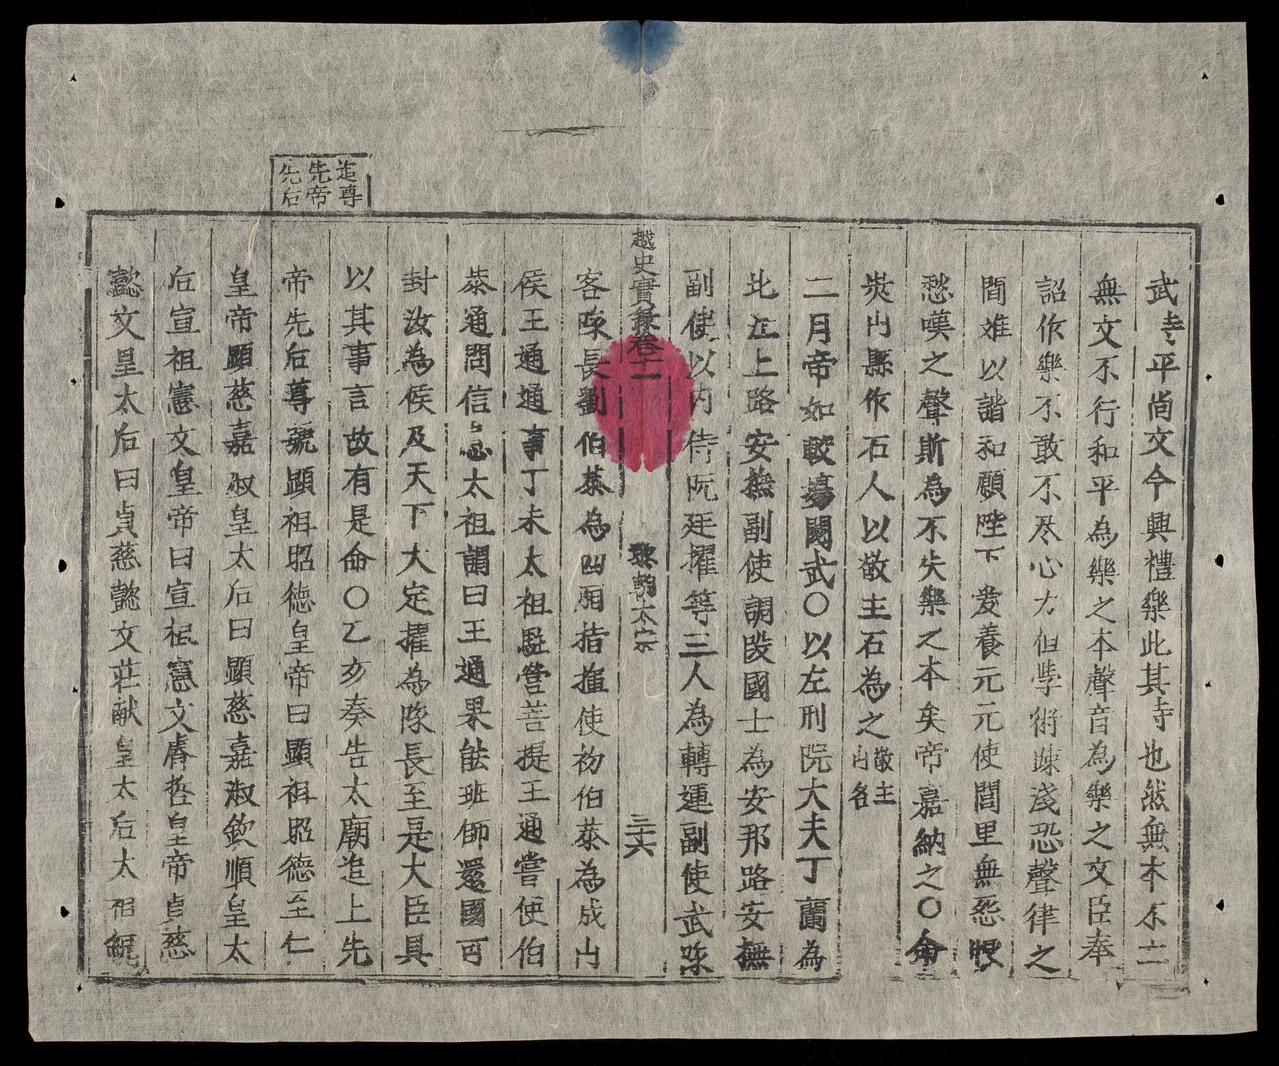 追尊
先帝
先后
武𡬠平尚文今興禮樂此其𡬠也然無本不立
無文不行和平為樂之本聲音為樂之文臣奉
詔作樂不敢不尽心力但學術踈淺恐聲律之
間难以諧和願陛下爱養元元使閭里無怨恨
愁嘆之聲斯為不失樂之本矣帝嘉納之〇命
炭山縣作石人以敬主石為之敬主山名
二月帝如較塲閲武〇以左刑院大夫丁蘭為
北江上路安撫副使調段國士為安邦路安撫
副使以内侍阮廷擢等三人為轉運副使武隊
越史實錄卷十一
黎朝太宗
三十六
客隊長劉伯恭為四厢指揮使初伯恭為成山
侯王通通事丁未太祖駐營菩提王通嘗使伯
恭通問信息太祖謂曰王通果能班師還國可
封汝為侯及天下大定擢為隊長至是大臣具
以其事言故有是命〇乙亥奏告太廟追上先
帝先后尊號顯祖昭徳皇帝曰顯祖昭徳至仁
皇帝顯慈嘉淑皇太后曰顯慈嘉淑欽順皇太
后宣祖憲文皇帝曰宣祖憲文睿哲皇帝貞慈
懿文皇太后曰貞慈懿文莊献皇太后太祖